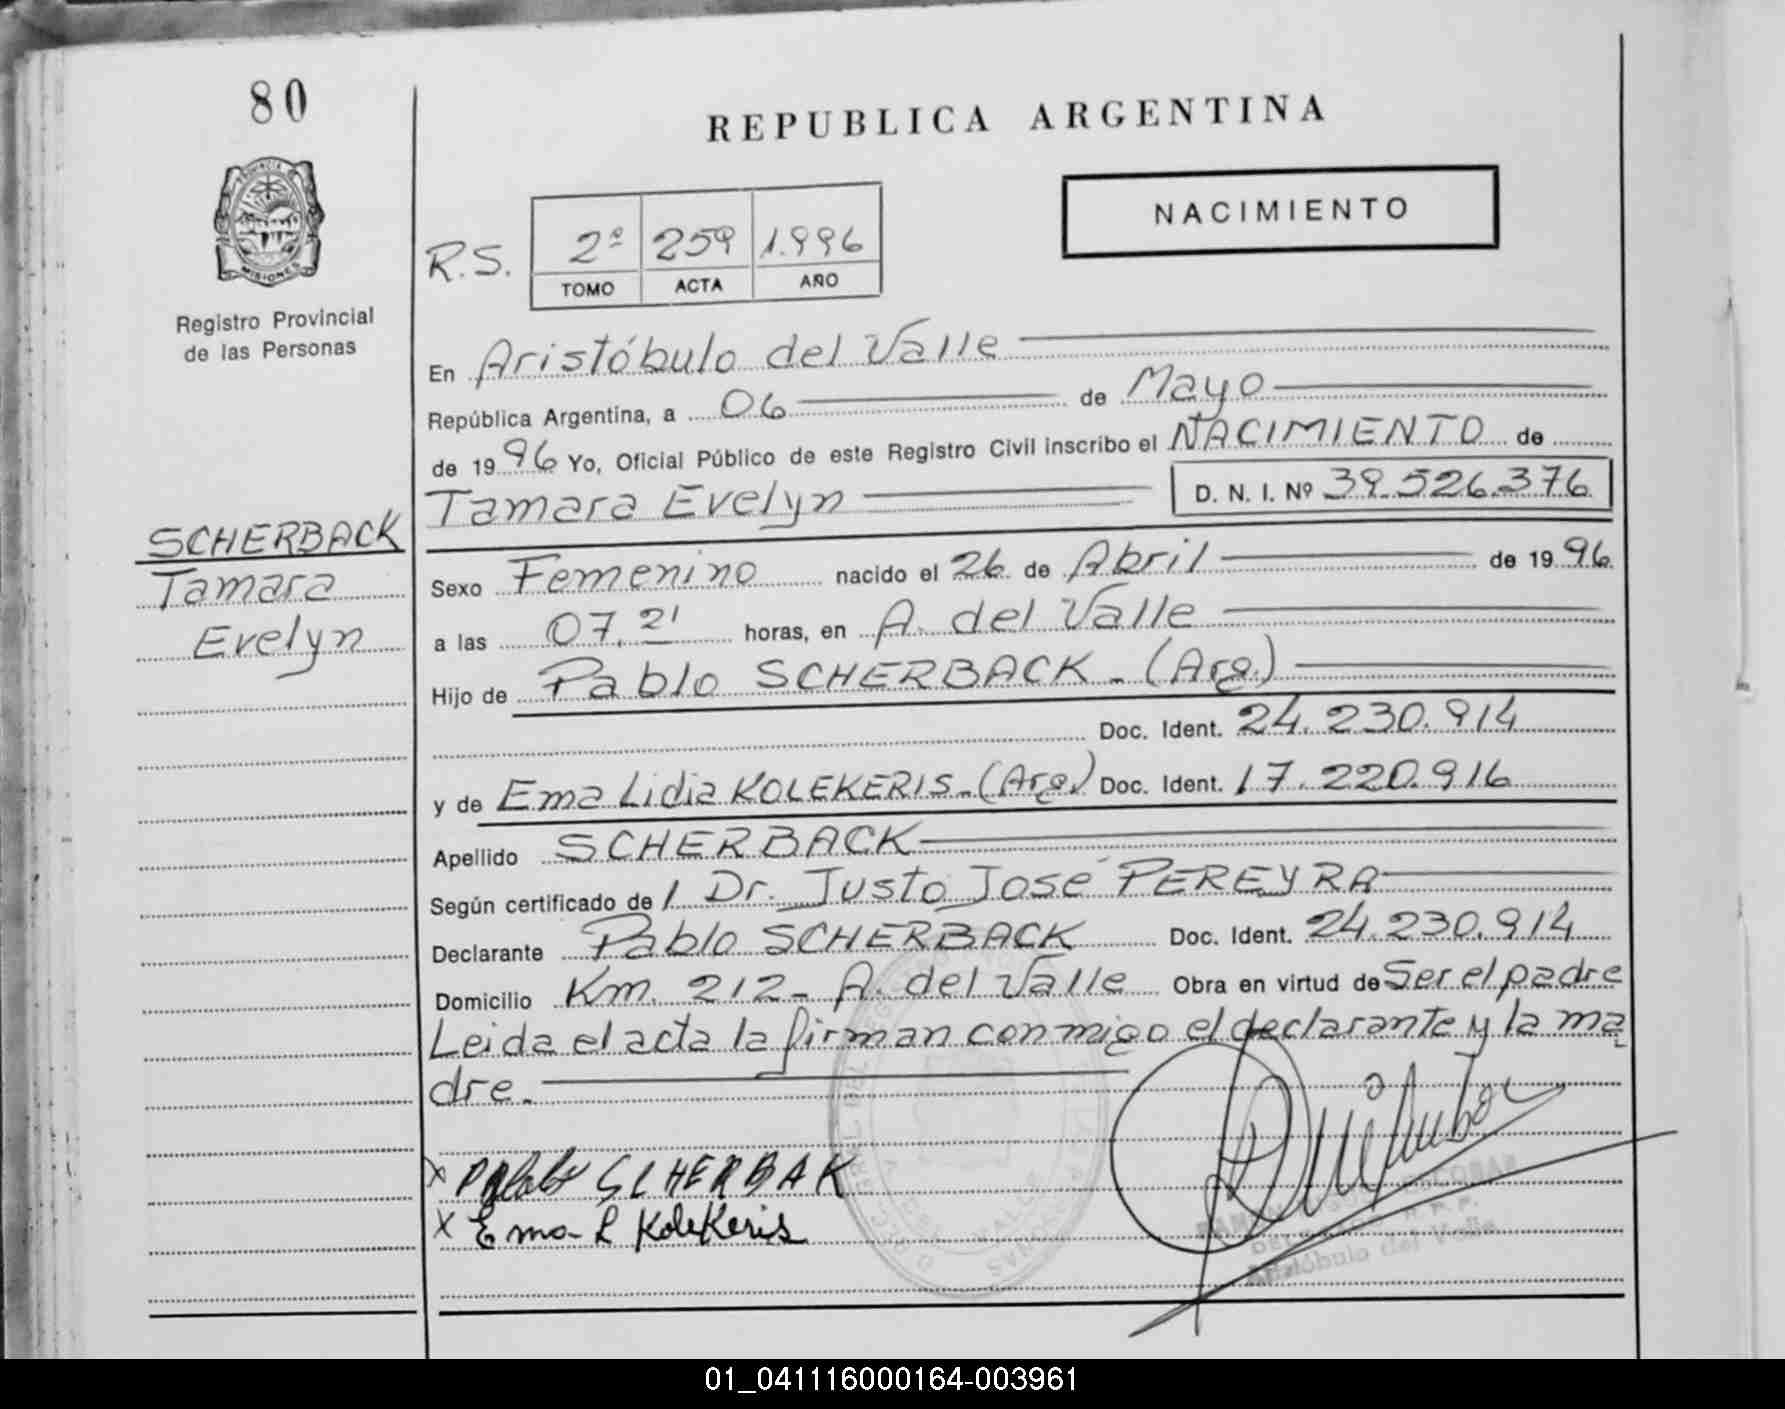 80
REPUBLICA ARGENTINA
PROVINCIA DE
MISIONES
NACIMIENTO
R.S. 2º 259 1.996
TOMO ACTA AÑO
Registro Provincial
de las Personas
En Aristóbulo del Valle
República Argentina, a 06 de Mayo
de 1996 Yo, Oficial Público de este Registro Civil inscribo el NACIMIENTO de
Tamara Evelyn D. N. I. Nº 39.526.376
SCHERBACK
Tamara
Evelyn
Sexo Femenino nacido el 26 de Abril de 1996
a las 07,21 horas, en A. del Valle
Hijo de Pablo SCHERBACK - (Arg.)
Doc. Ident. 24.230.914
y de Ema Lidia KOLEKERIS - (Arg.) Doc. Ident. 17.220.916
Apellido SCHERBACK
Según certificado de / Dr. Justo José PEREYRA
Declarante Pablo SCHERBACK Doc. Ident. 24.230.914
Domicilio Km. 212 - A. del Valle Obra en virtud de Ser el padre
Leida el acta la firman conmigo el declarante y la ma
dre.
x Pablo SCHERBAK
x Ema L Kolekeris
Aristóbulo del Valle
01_041116000164-003961